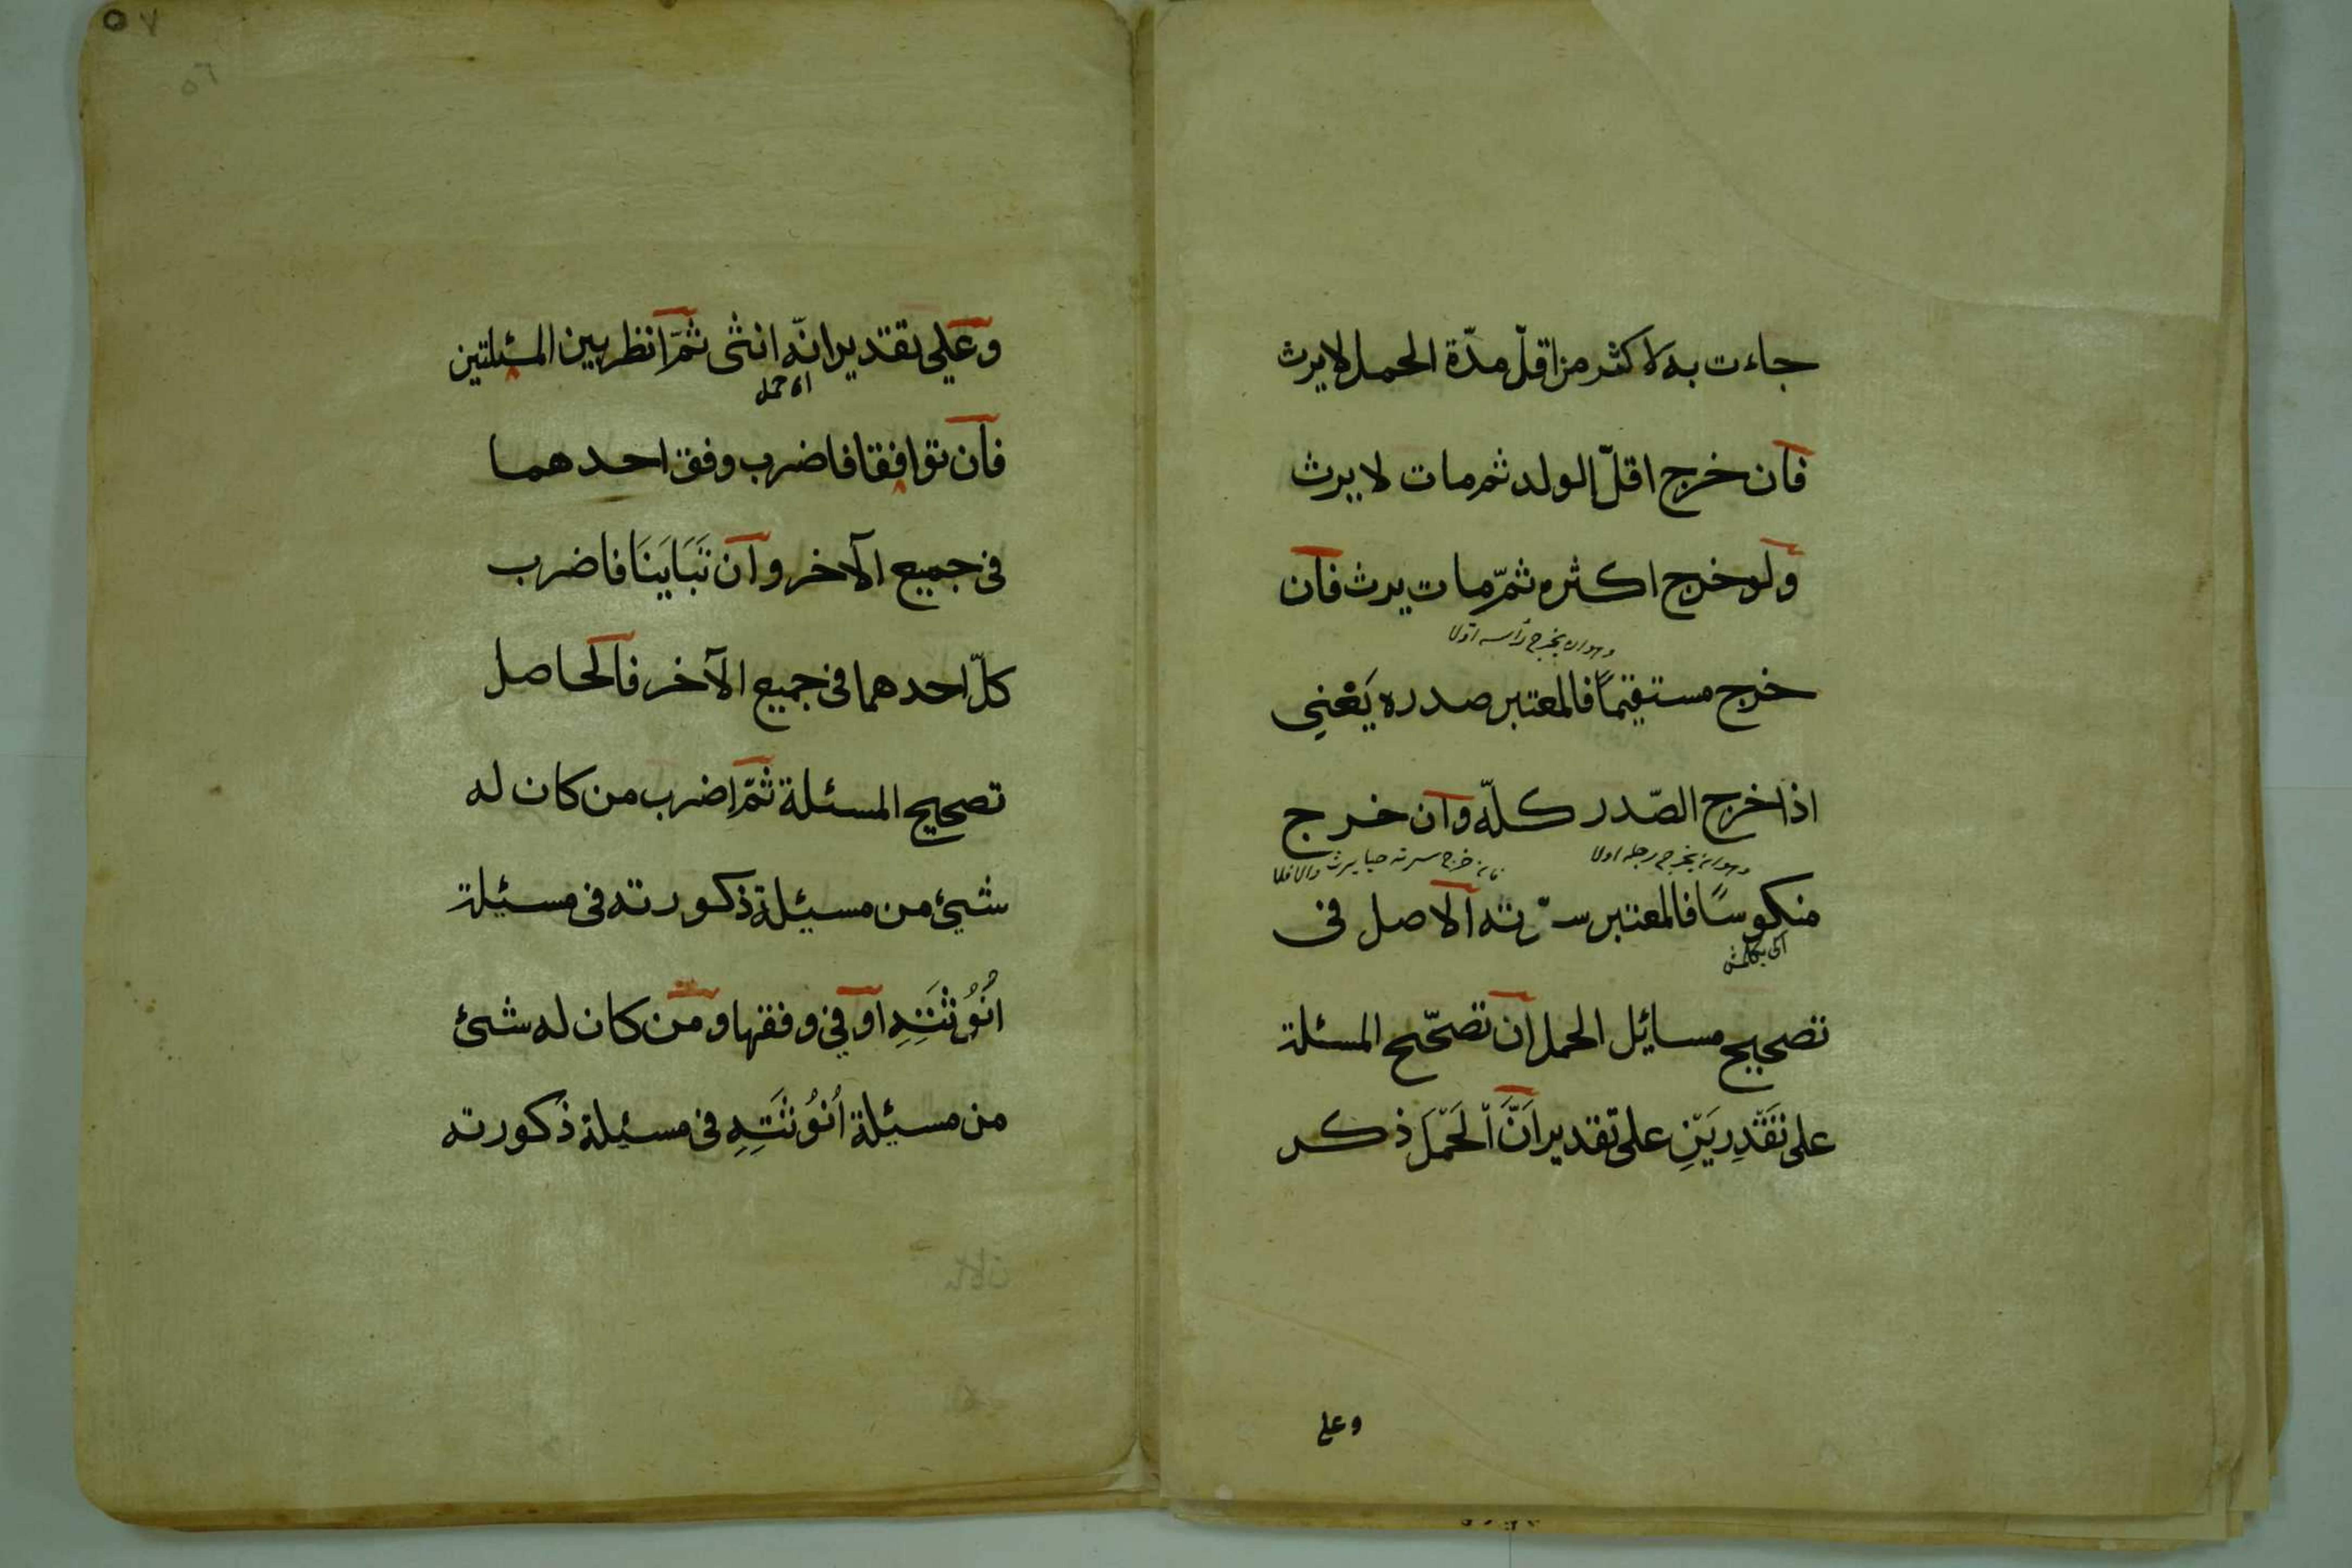 جاءت به لاكثر من اقلّ مدّة الحمل لا يرث
فان خرج اقلّ الولد ثم مات لا يرث
ولو خرج اكثره ثمّ مات يرث فان
وهو ان يخرج رأسه اولا
خرج مستقيمًا فالمعتبر صدره يَعْني
اذا خرج الصّدر كلّه وان خرج
وهو ان يخرج رجله اولا
فان خرج سرته حيا يرث والا فلا
منكوسًا فالمعتبر سرّته الاصل فى
تصحيح مسايل الحمل ان تصحّح المسئلة
على تَقْدِريَيْنِ على تقدير اَنَّ الَحَمْلَ ذكر
وعلى
٥٧
٥٦
وعلي تقدير انّه انثى ثمّ انظر بين المسئلتين
اى حمل
فان توافقا فاضرب وفق احدهما
فى جميع الآخر وان تَبَايَنَا فاضرب
كلّ احدهما فى جميع الآخر فالحاصل
تصحيح المسئلة ثمّ اضرب من كان له
شيئ من مسئلة ذكورته فى مسئلة
اُنُوُثَتِهِ او في وفقها ومن كان له شئ
من مسئلة اُنُوُثَتِهِ فى مسئلة ذكورته